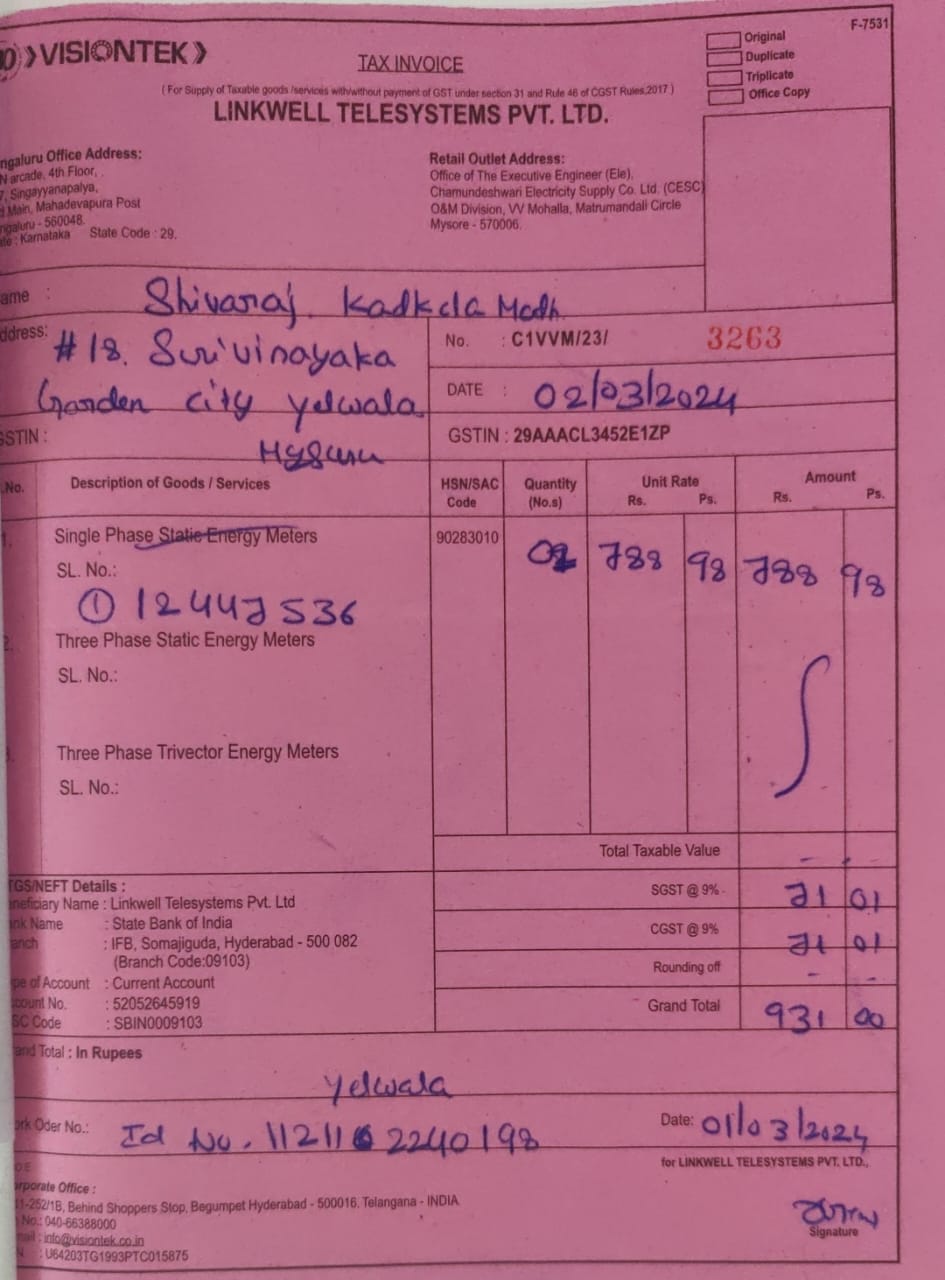 F-7531
VISIONTEK
TAX INVOICE
Original
Duplicate
Triplicate
Office Copy
( For Supply of Taxable goods /services with/without payment of GST under section 31 and Rule 46 of CGST Rules,2017 )
LINKWELL TELESYSTEMS PVT. LTD.
ngaluru Office Address:
N arcade, 4th Floor,
7, Singayyanapalya,
d Main, Mahadevapura Post
ngaluru - 560048.
ate : Karnataka State Code : 29.
Retail Outlet Address:
Office of The Executive Engineer (Ele),
Chamundeshwari Electricity Supply Co. Ltd. (CESC)
O&M Division, VV Mohalla, Matrumandali Circle
Mysore - 570006.
ame : Shivaraj. Kadkda Madh.
ddress: #18. Surivinayaka
Garden city yelwala
GSTIN :
Mysuru
No. : C1VVM/23/ 3263
DATE : 02/03/2024
GSTIN : 29AAACL3452E1ZP
.No. Description of Goods / Services HSN/SAC Code Quantity (No.s) Unit Rate Rs. Ps. Amount Rs. Ps.
1. Single Phase Static Energy Meters 90283010 788 98 788 98
SL. No.:
① 12447536
2. Three Phase Static Energy Meters
SL. No.:
3. Three Phase Trivector Energy Meters
SL. No.:
Total Taxable Value - -
SGST @ 9% 71 01
CGST @ 9% 71 01
Rounding off - -
Grand Total 931 00
TGS/NEFT Details :
neficiary Name : Linkwell Telesystems Pvt. Ltd
nk Name : State Bank of India
anch : IFB, Somajiguda, Hyderabad - 500 082
(Branch Code:09103)
pe of Account : Current Account
count No. : 52052645919
SC Code : SBIN0009103
and Total : In Rupees
yelwala
ork Oder No.: Id No. 112116 2240198
Date: 01/03/2024
for LINKWELL TELESYSTEMS PVT. LTD.,
orporate Office :
11-252/1B, Behind Shoppers Stop, Begumpet Hyderabad - 500016. Telangana - INDIA
No.: 040-66388000
mail : info@visiontek.co.in
N : U64203TG1993PTC015875
Signature